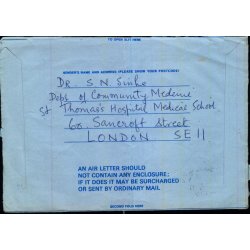 TO OPEN SLIT HERE
SENDER'S NAME AND ADDRESS (PLEASE SHOW YOUR POSTCODE)
DR S N Sinha
Dept of Community Medicine
St Thomas's Hospital Medical School
60 Sancroft Street
LONDON SE 11
AN AIR LETTER SHOULD
NOT CONTAIN ANY ENCLOSURE;
IF IT DOES IT MAY BE SURCHARGED
OR SENT BY ORDINARY MAIL
SECOND FOLD HERE